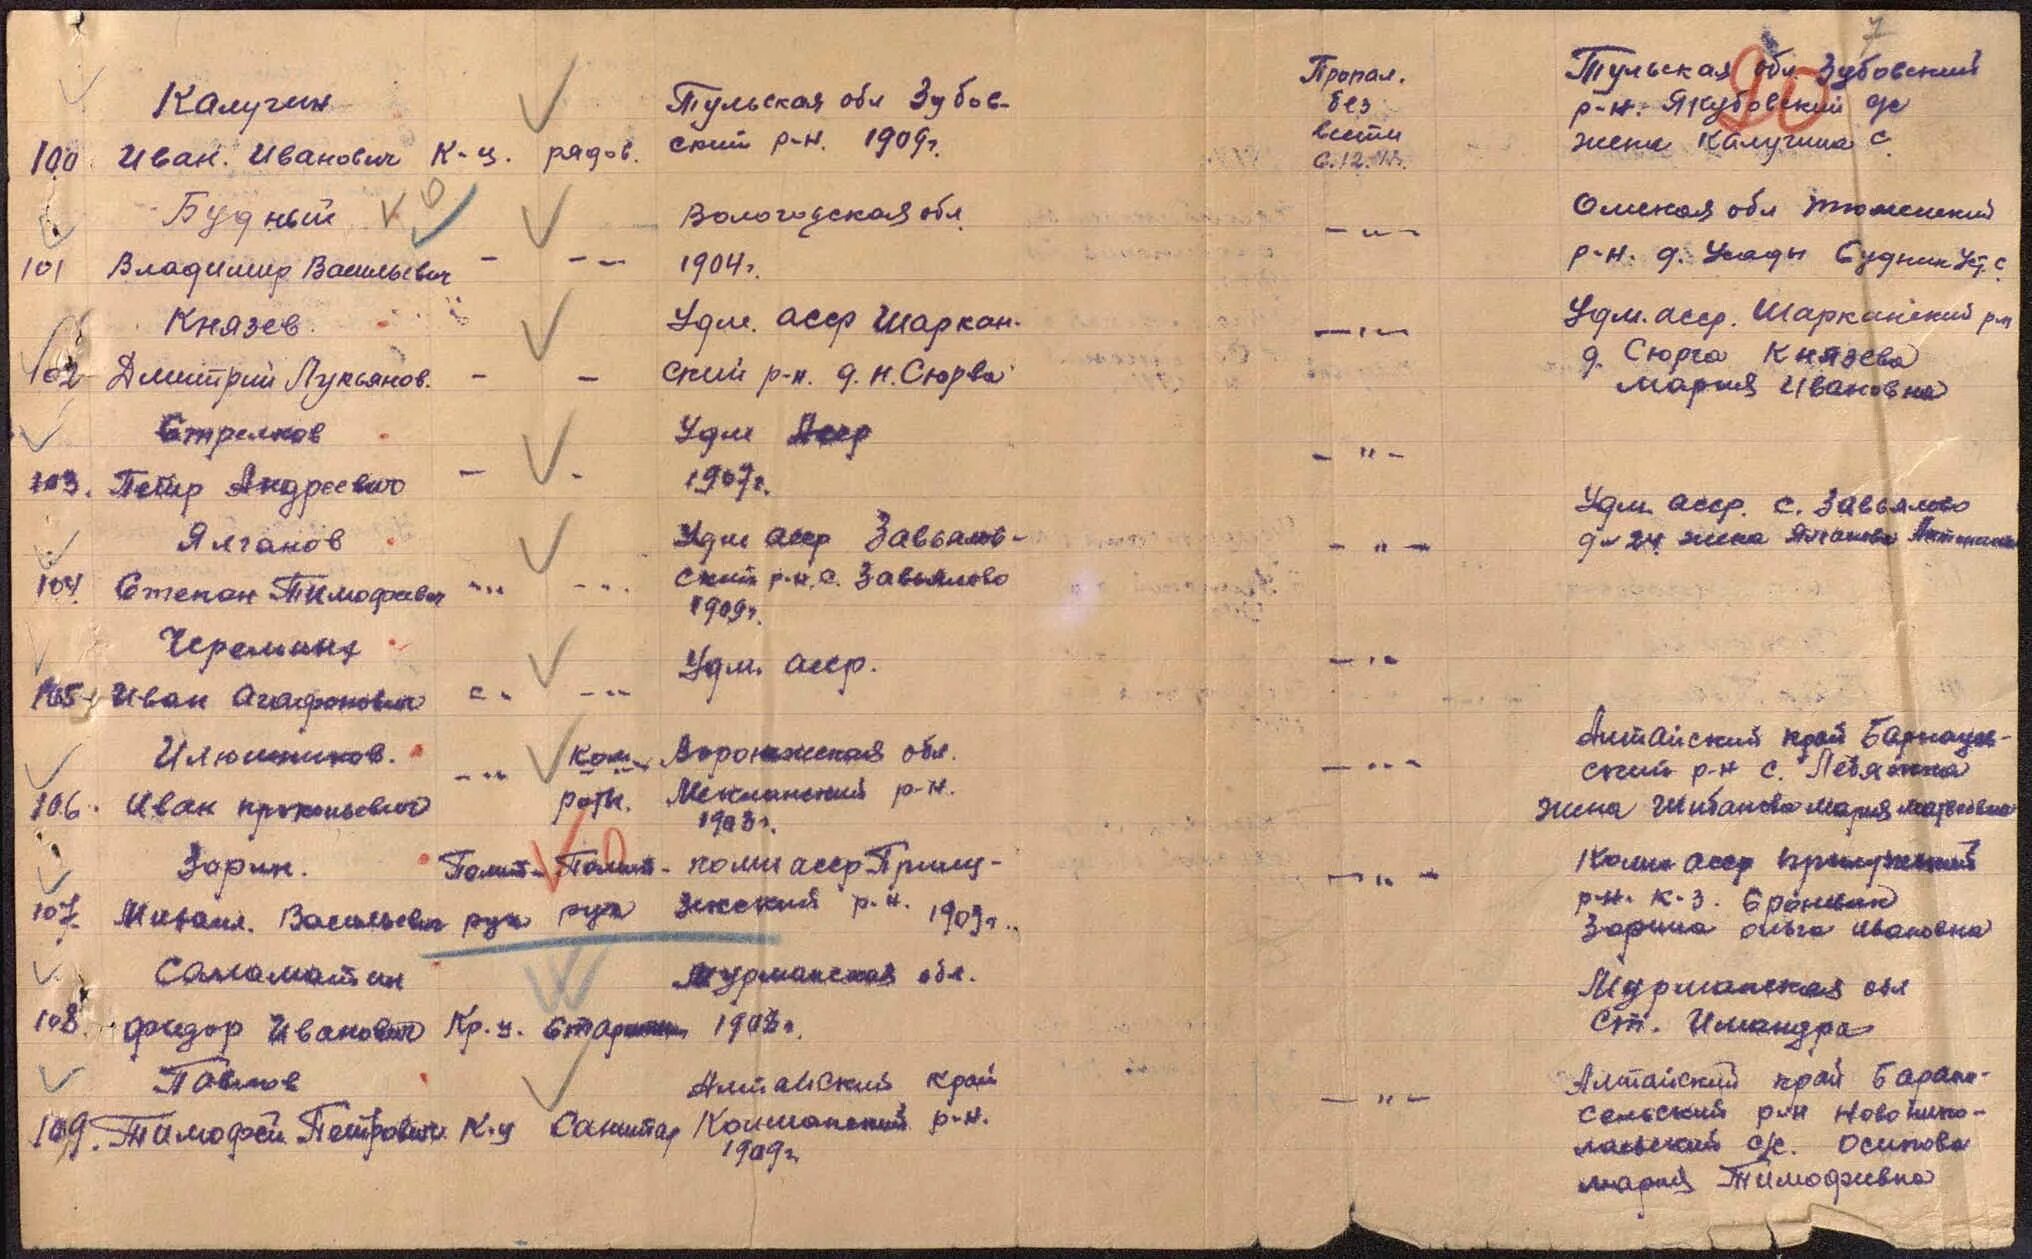 7
20
Калугин
100. Иван. Иванович К-ц. рядов.
Тульская обл Зубов-
ский р-н. 1909г.
Пропал.
без
вести
Тульская обл Зубовский
р-н. Якубовский
жена Калугина С.
Будный
101 Владимир Васильевич - - --
Вологодская обл
1904г.
- „ -
Омская обл Тюменский
р-н. д.
Князев
102 Дмитрий Лукьянов. - -
Удм. асср Шаркан-
ский р-н. д. н. Сюрва
- „ -
Удм. асср. Шарканский р-н
д. Сюрга Князева
Мария Ивановна
Стрелков
103. Петр Андреевич - -
Удм Асср
1907г.
- „ -
Ялганов
104. Степан Тимофевич
Удм асср Завьялов-
ский р-н. с. Завьялово
1909г.
- „ -
Удм. асср. с. Завьялово
д- 24 жена
105 Иван Агафонович
Удм. асср.
- „ -
106. Иван прокопьевич
Ком.
роты.
Воронежская обл.
р-н.
1903г.
- „ -
Алтайский край Барнауль-
ский р-н с. Лебяжка
жена Шибанова Мария Матвеевна
Зорин.
107 Михаил. Васильевич
Полит- Полит-
рук рук
коми асср Прилу-
зжский р-н. 1903г.
- „ -
Коми асср
р-н. к-з.
Зорина ольга Ивановна
Саламатин
108. Федор Иванович Кр.ц.
Мурманская обл.
Мурманская обл
ст. Имандра
Павлов
109. Тимофей Петрович К.ц Санитар
Алтайский край
р-н.
1909г.
- „ -
Алтайский край
сельский р-н Новонико-
лаевский с/с. Осипова
Мария Тимофевна